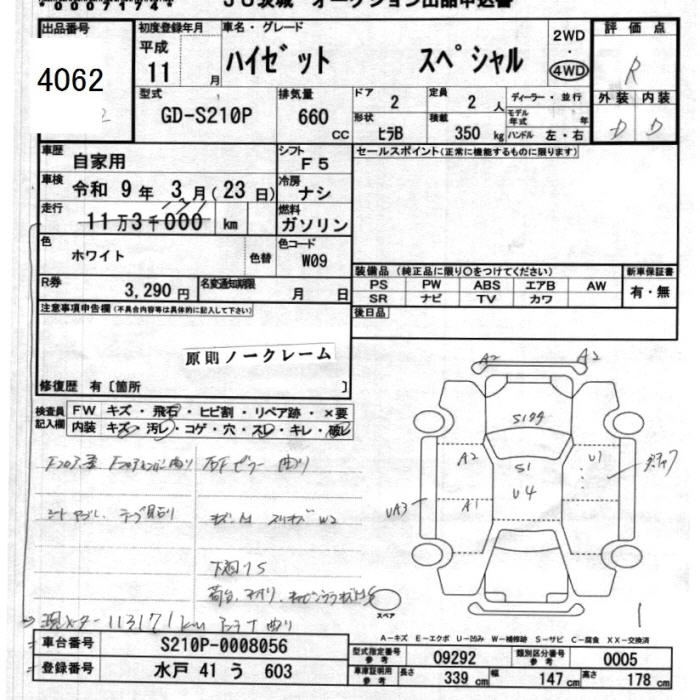 JU茨城 オークション出品申込書
出品番号 初度登録年月 車名・グレード 2WD 評価点
4062 平成 11 月 ハイゼット スペシャル ・ 4WD R
型式 排気量 ドア 定員 ディーラー・並行 外装 内装
GD-S210P 660 CC 2 2 人 モデル年式 年 D D
形状 ヒラB 積載 350 kg ハンドル 左・右
車歴 自家用 シフト F5 セールスポイント(正常に機能するものに限ります)
車検 令和 9 年 3 月 (23 日) 冷房 ナシ
走行 11万3千000 km 燃料 ガソリン
色 ホワイト 色替 色コード W09
装備品 (純正品に限り○をつけてください) 新車保証書
R券 3,290 円 名変通知期限 月 日 PS PW ABS エアB AW 有・無
SR ナビ TV カワ
注意事項申告欄 (不具合内容等は具体的に記入して下さい) 後日品
原則ノークレーム
修復歴 有〔箇所 〕
検査員記入欄 FW キズ・飛石・ヒビ割・リペア跡・×要
内装 キズ・汚レ・コゲ・穴・スレ・キレ・破レ
A2 A2
A2 S1 U1
U4
UA3 A1
W2
下廻りS
113171km
スペア
A-キズ E-エクボ U-凹み W-補修跡 S-サビ C-腐食 XX-交換済
車台番号 S210P-0008056 型式指定番号 参考 09292 類別区分番号 参考 0005
登録番号 水戸 41 う 603 車庫証明用 参考 長さ 339 cm 幅 147 cm 高さ 178 cm